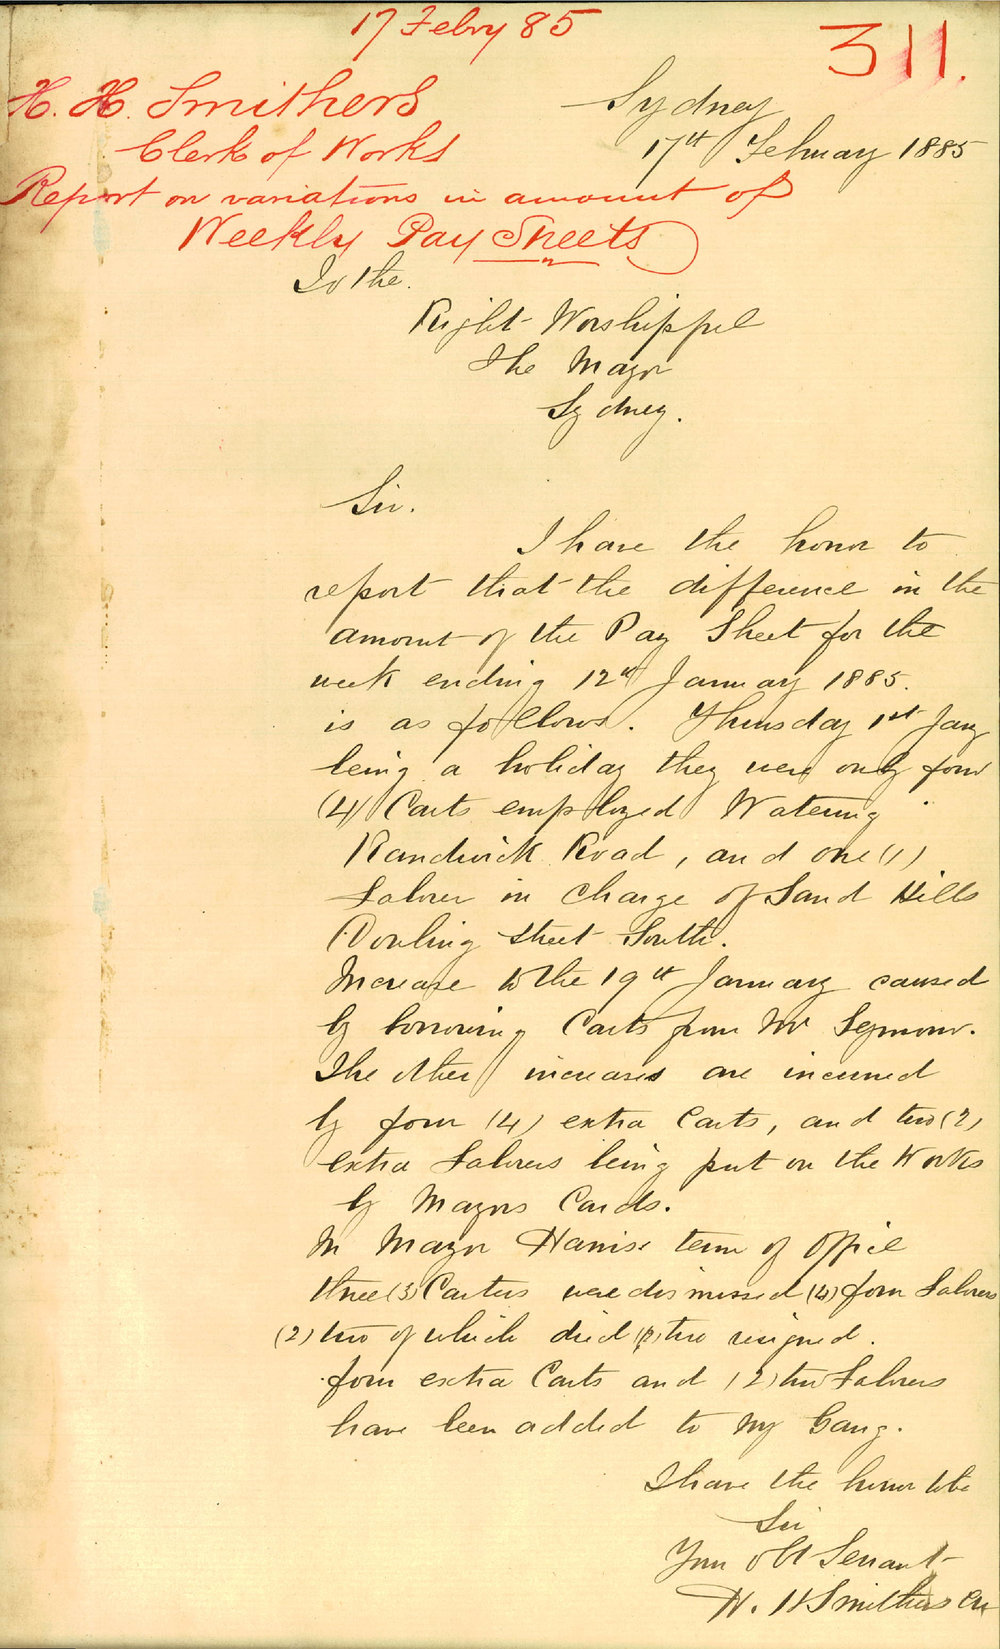 17 Febry 85
311.
H. H. Smithers
Clerk of Works
Report on variations in amount of
Weekly Pay Sheets
Sydney
17th February 1885
To the.
Right Worshippful
The Mayor
Sydney.
Sir.
I have the honor to
report that the difference in the
amount of the Pay Sheet for the
week ending 12th January 1885.
is as follows. Thursday 1st Jany
being a holiday they were only four
(4) Carts employed Watering
Randwick Road, and one (1)
Laborer in charge of Sand Hills
Dowling street South.
Increase to the 19th January caused
by borrowing Carts from Mr Seymour.
The other increases are incurred
by four (4) extra Carts, and two (2)
extra Laborers being put on the Works
by Mayors Cards.
In Mayor Harriss term of Office
three (3) Carters were dismissed (4) four Laborers
(2) two of which died (2) two resigned.
four extra Carts and (2) two Laborers
have been added to my Gang.
I have the honor to be
Sir
Your obt Servant
H. H Smithers